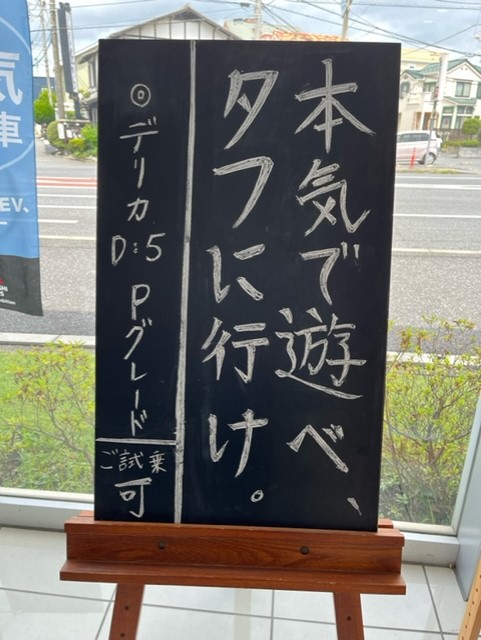 本気で遊べ、
タフに行け。
◎デリカ
D:5 Pグレード
ご試乗
可
気
車
EV、